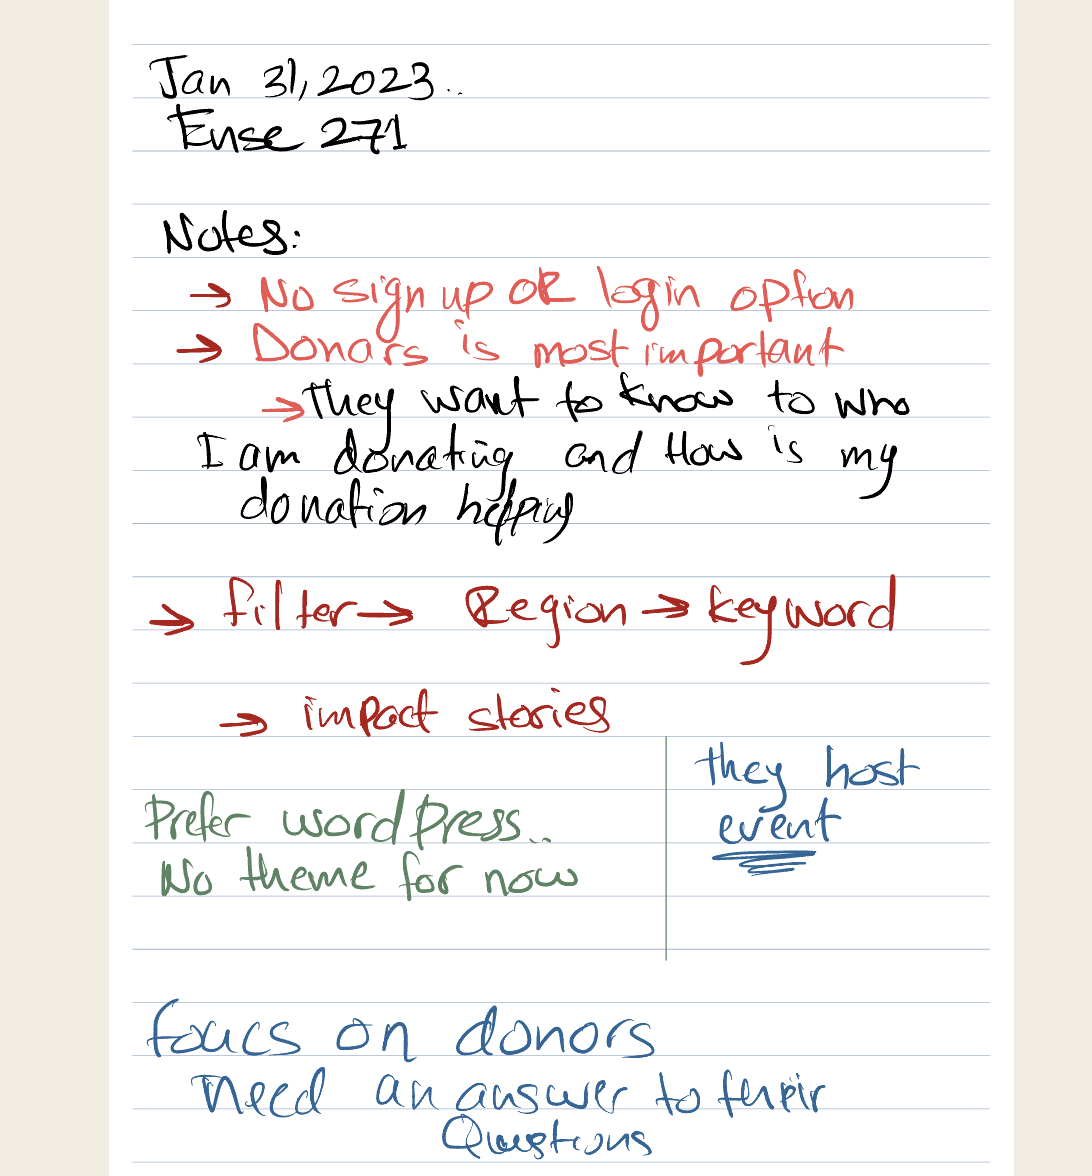 Jan 31, 2023..
Ense 271
Notes:
→ No sign up OR login option
→ Donars is most important
→ They want to know to who
I am donating and How is my
donation helping
→ filter → Region → keyword
→ impact stories
they host
event
Prefer wordpress..
No theme for now
foucs on donors
need an answer to their
Questions